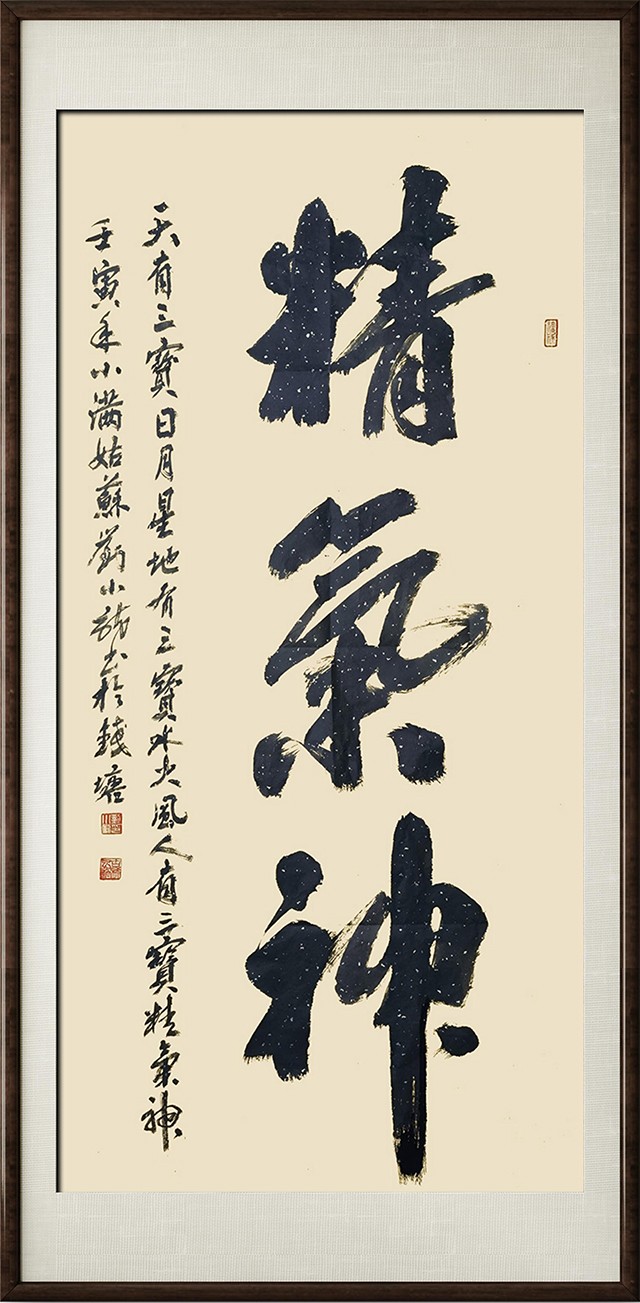 精氣神
天有三寶日月星地有三寶水火風人有三寶精氣神
壬寅年小滿姑蘇劉小書於錢塘